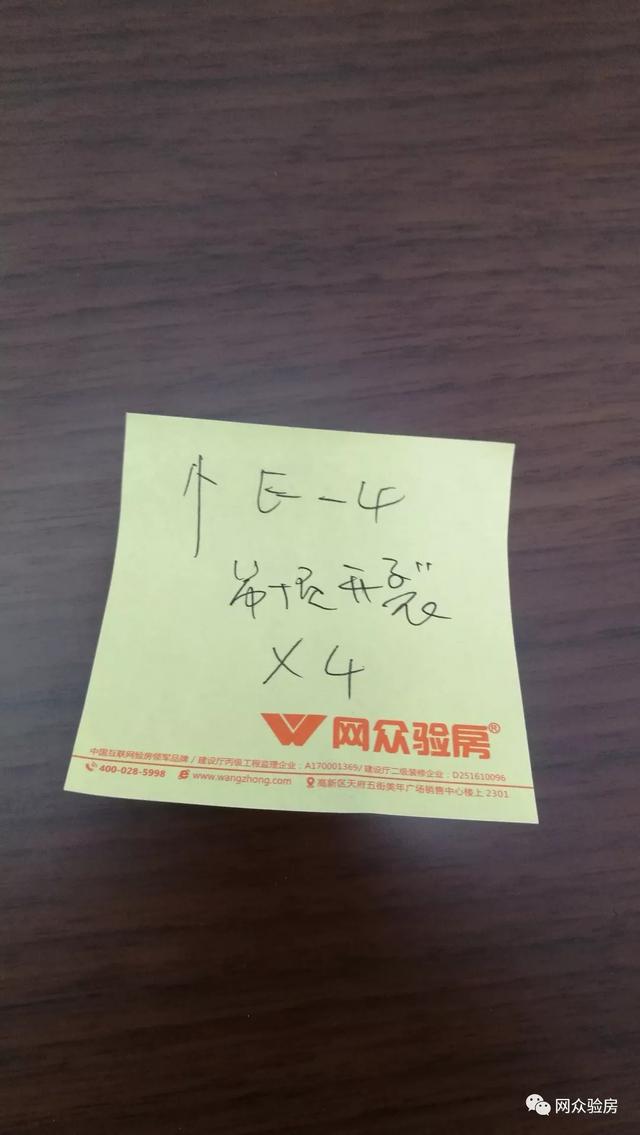 ↑ E-4
吊顶开裂
×4
网众验房®
中国互联网验房领军品牌 / 建设厅丙级工程监理企业：A170001369/ 建设厅二级装修企业：D251610096
400-028-5998 www.wangzhong.com 高新区天府五街美年广场销售中心楼上 2301
网众验房